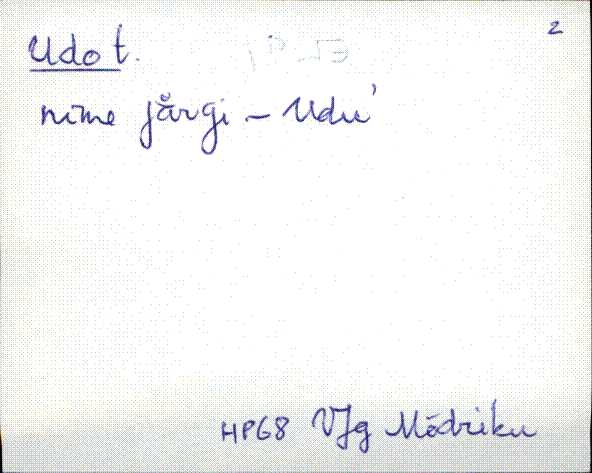 2
Udo t.
nime järgi - Udu'
HP68 VJg Mõdriku